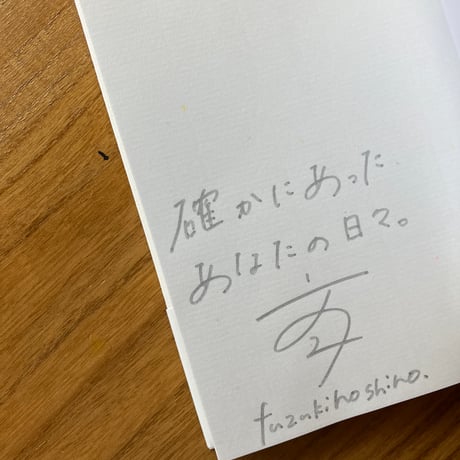 確かにあった、
あなたの日々。
fuzukihoshino.